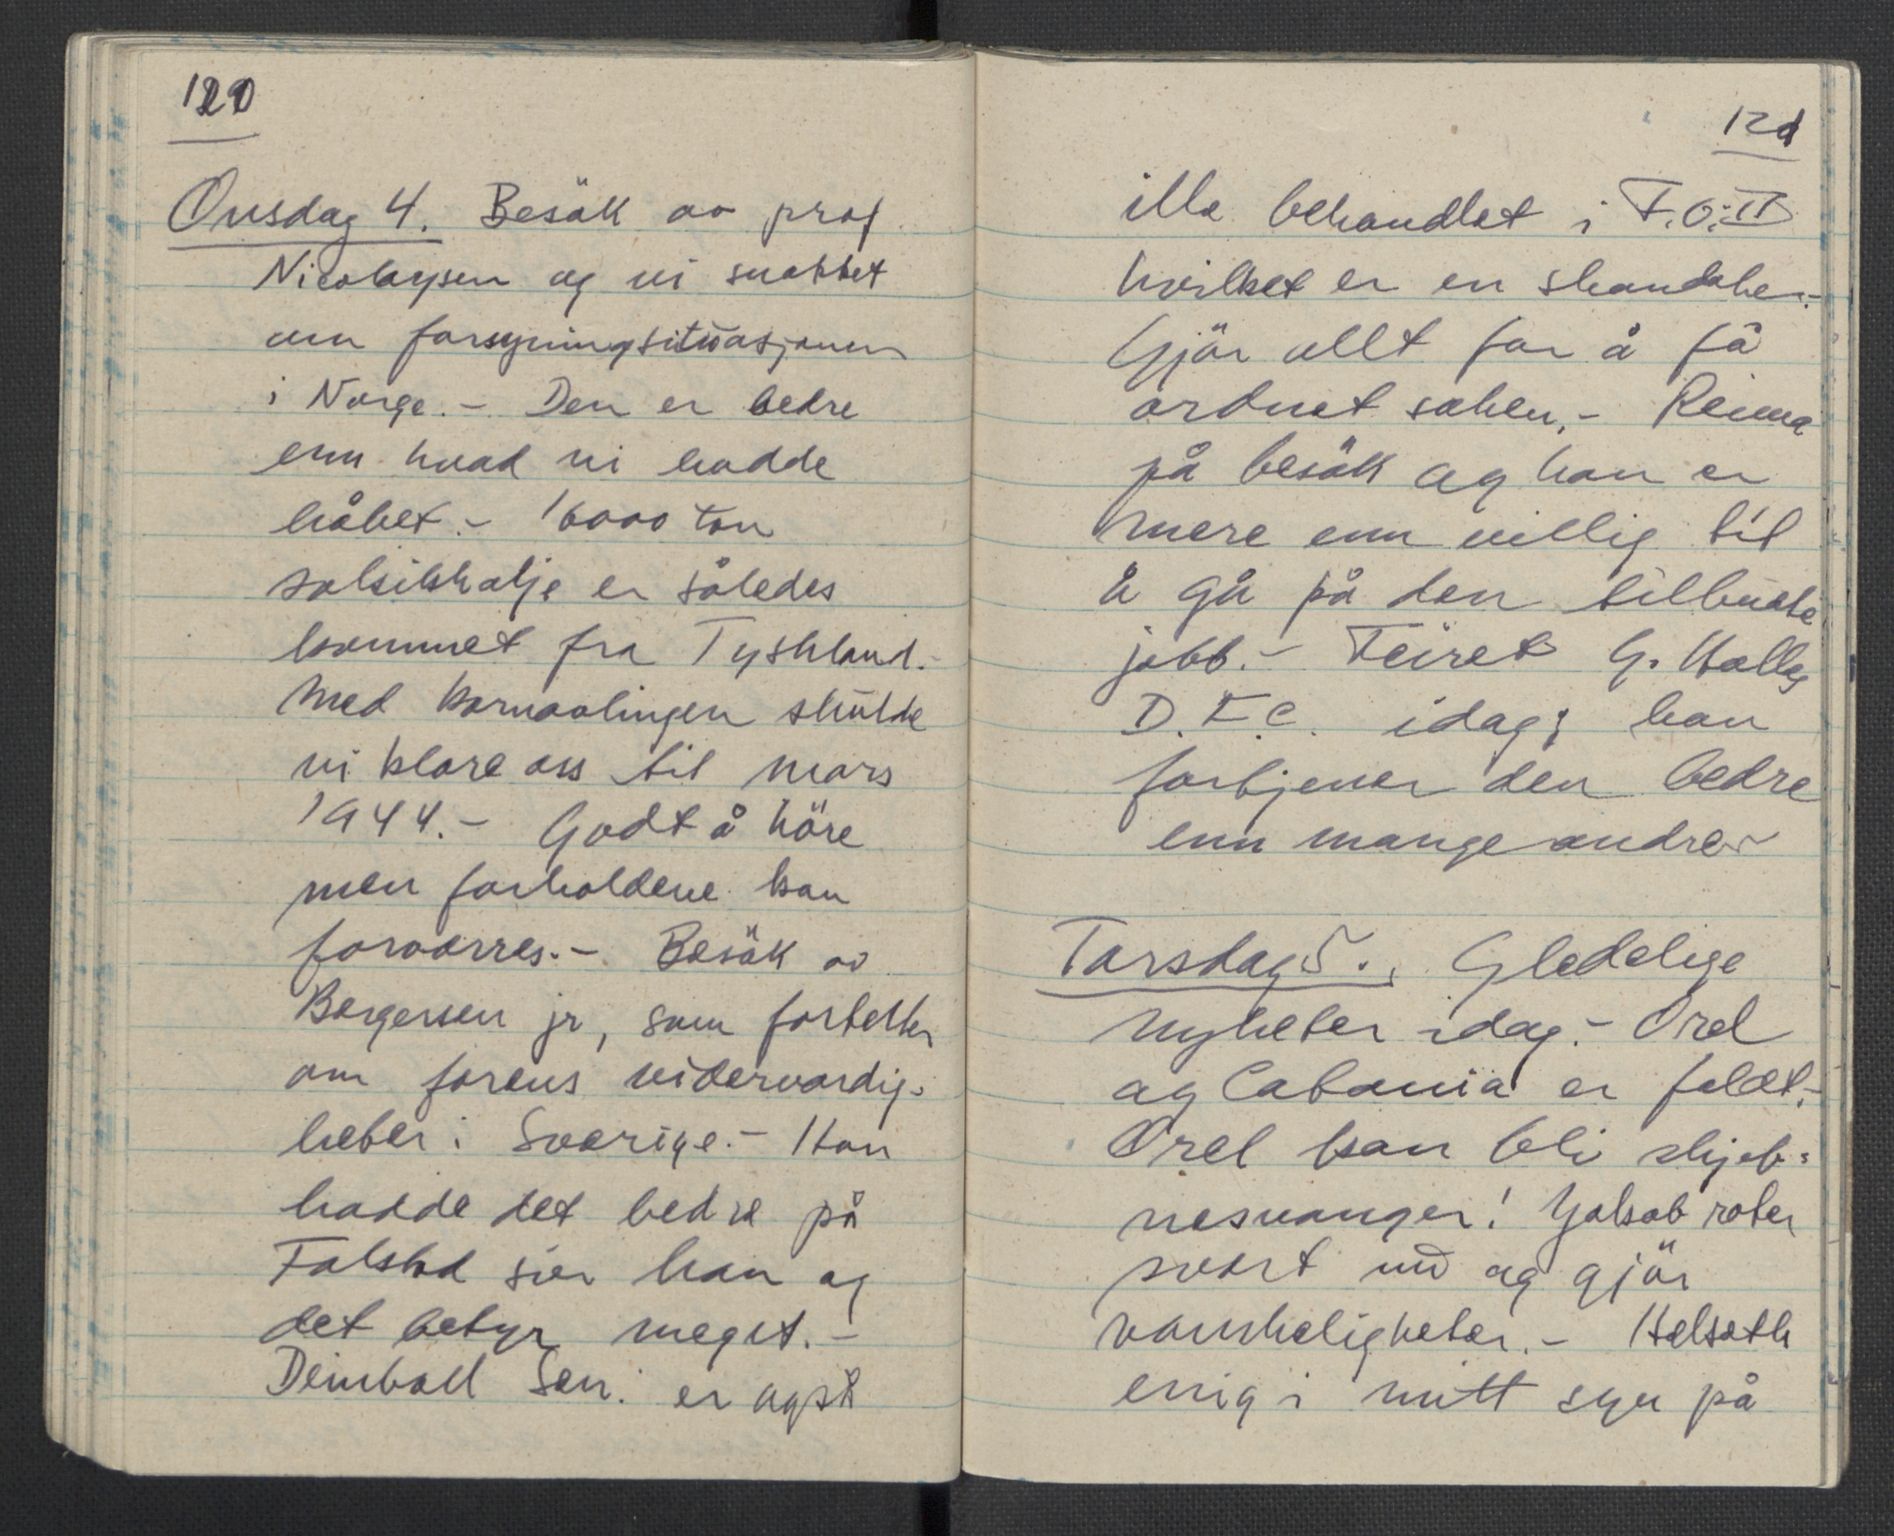 120
Onsdag 4. Besök av prof.
Nicolaysen og vi snakket
om forsyningsituasjonen
i Norge.- Den er bedre
enn hvad vi hadde
håbet.- 16000 ton
solsikkolje er således
kommet fra Tyskland.-
Med kornavlingen skulde
vi klare oss til mars
1944.- Godt å höre
men forholdene kan
forværres.- Besök av
Bergersen jr, som forteller
om farens viderverdig-
heter i Sverige.- Han
hadde det bedre på
Falstad sier han og
det betyr meget.-
Deinboll Sen. er også
121
ille behandlet i F.O.II
hvilket er en skandale.-
Gjör allt for å få
ordnet saken.- Reima
på besök og han er
mere enn villig til
å gå på den tilbudte
jobb.- Feiret G. Halle
D.F.C. idag; han
fortjener den bedre
enn mange andre-
Torsdag 5. Gledelige
nyheter idag.- Orel
og Catania er falt.-
Orel kan bli skjeb-
nesvanger! Jakob roter
svært nu og gjör
vanskeligheter.- Helseth
enig i mitt syn på